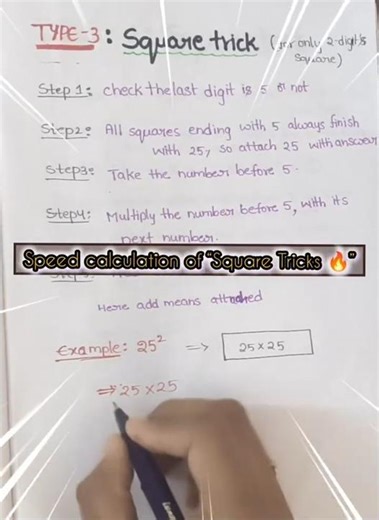 TYPE-3: Square trick (for only 2-digit's
Square)
Step 1: check the last digit is 5 or not
Step2: All squares ending with 5 always finish
with 25, so attach 25 with answer
Step3: Take the number before 5.
Step4: Multiply the number before 5, with its
next number.
Speed calculation of "Square Tricks 🔥"
Here add means attached
Example: 25² => 25 × 25
=> 25 × 25